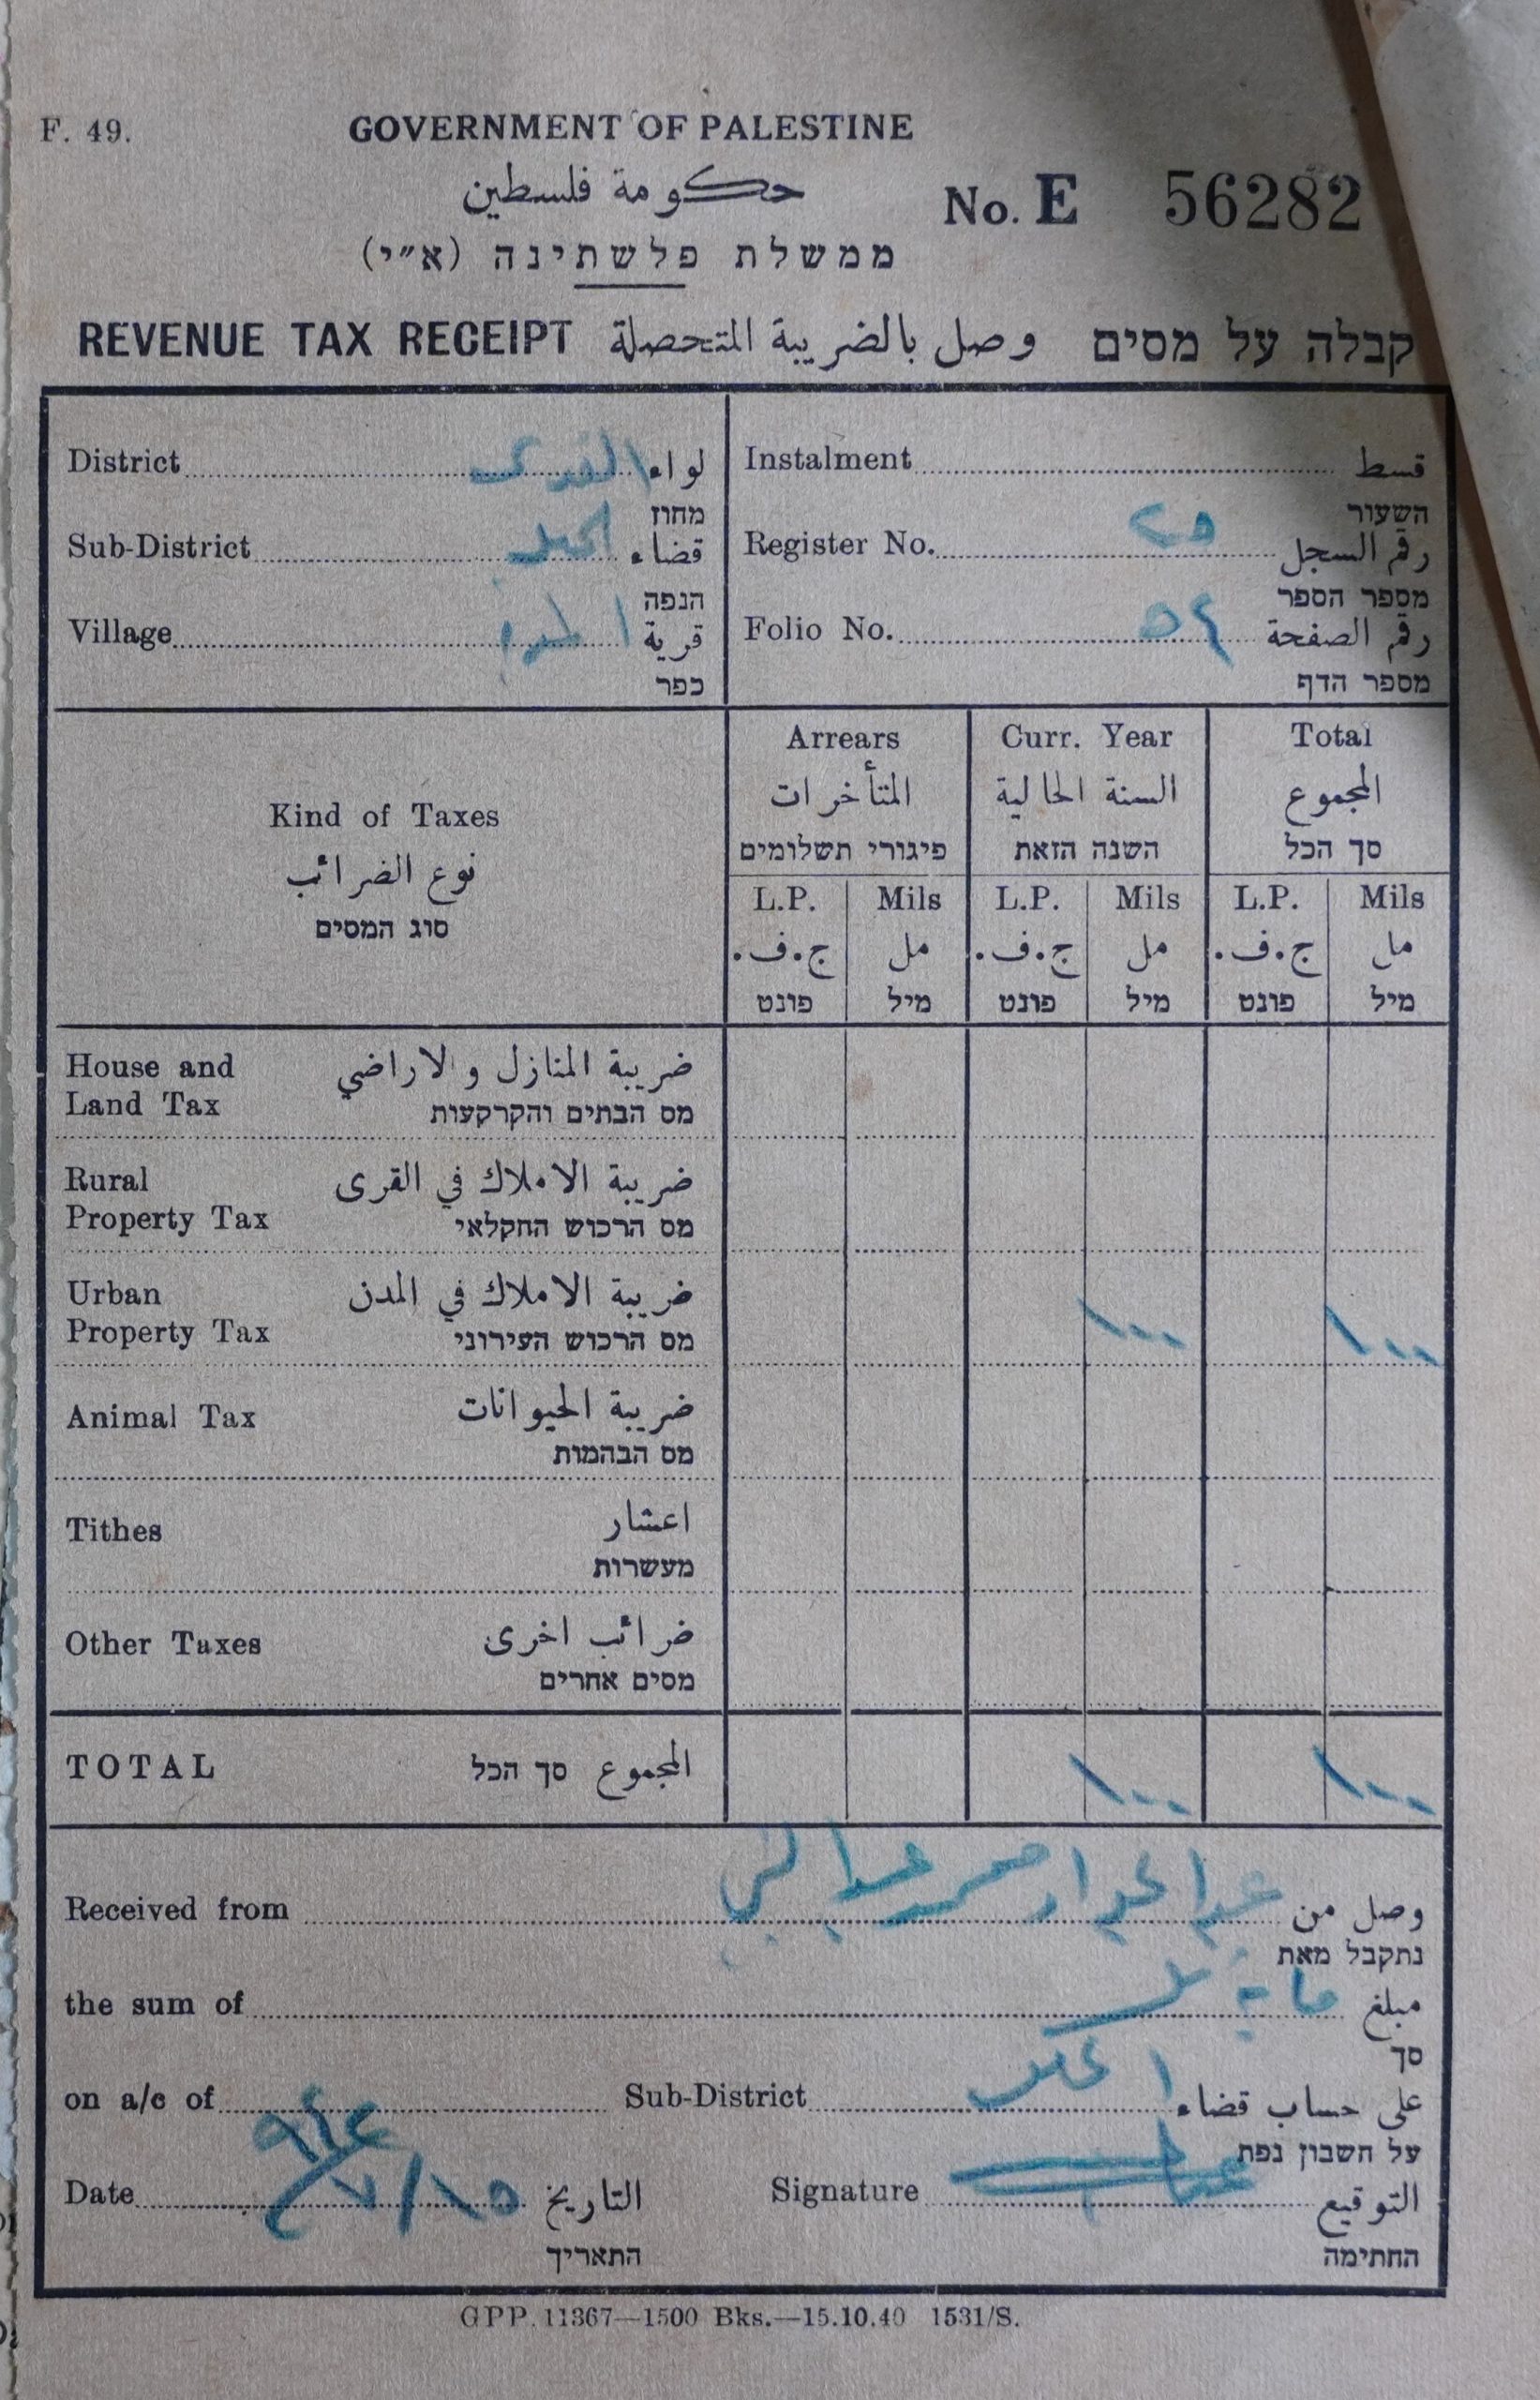 F. 49.
GOVERNMENT OF PALESTINE
حكومة فلسطين
No. E 56282
ממשלת פלשתינה (א״י)
REVENUE TAX RECEIPT وصل بالضريبة المتحصلة קבלה על מסים
District القدس لواء
מחוז
Sub-District الخليل قضاء
הנפה
Village قرية
כפר
Instalment قسط
השעור
Register No. ٢٥ رقم السجل
מספר הספר
Folio No. ٥٤ رقم الصفحة
מספר הדף
Kind of Taxes
نوع الضرائب
סוג המסים
Arrears Curr. Year Total
المتأخرات السنة الحالية المجموع
פיגורי תשלומים השנה הזאת סך הכל
L.P. Mils L.P. Mils L.P. Mils
ج.ف. مل ج.ف. مل ج.ف. مل
פונט מיל פונט מיל פונט מיל
House and Land Tax ضريبة المنازل والاراضي
מס הבתים והקרקעות
Rural Property Tax ضريبة الاملاك في القرى
מס הרכוש החקלאי
Urban Property Tax ضريبة الاملاك في المدن ١٠٠ ١٠٠
מס הרכוש העירוני
Animal Tax ضريبة الحيوانات
מס הבהמות
Tithes اعشار
מעשרות
Other Taxes ضرائب اخرى
מסים אחרים
TOTAL المجموع סך הכל ١٠٠ ١٠٠
Received from وصل من
נתקבל מאת
the sum of ماية مل مبلغ
סך
on a/c of Sub-District الخليل على حساب قضاء
על חשבון נפת
Date ١٥/٧/ التاريخ Signature التوقيع
התאריך החתימה
GPP. 11367—1500 Bks.—15.10.40 1531/S.